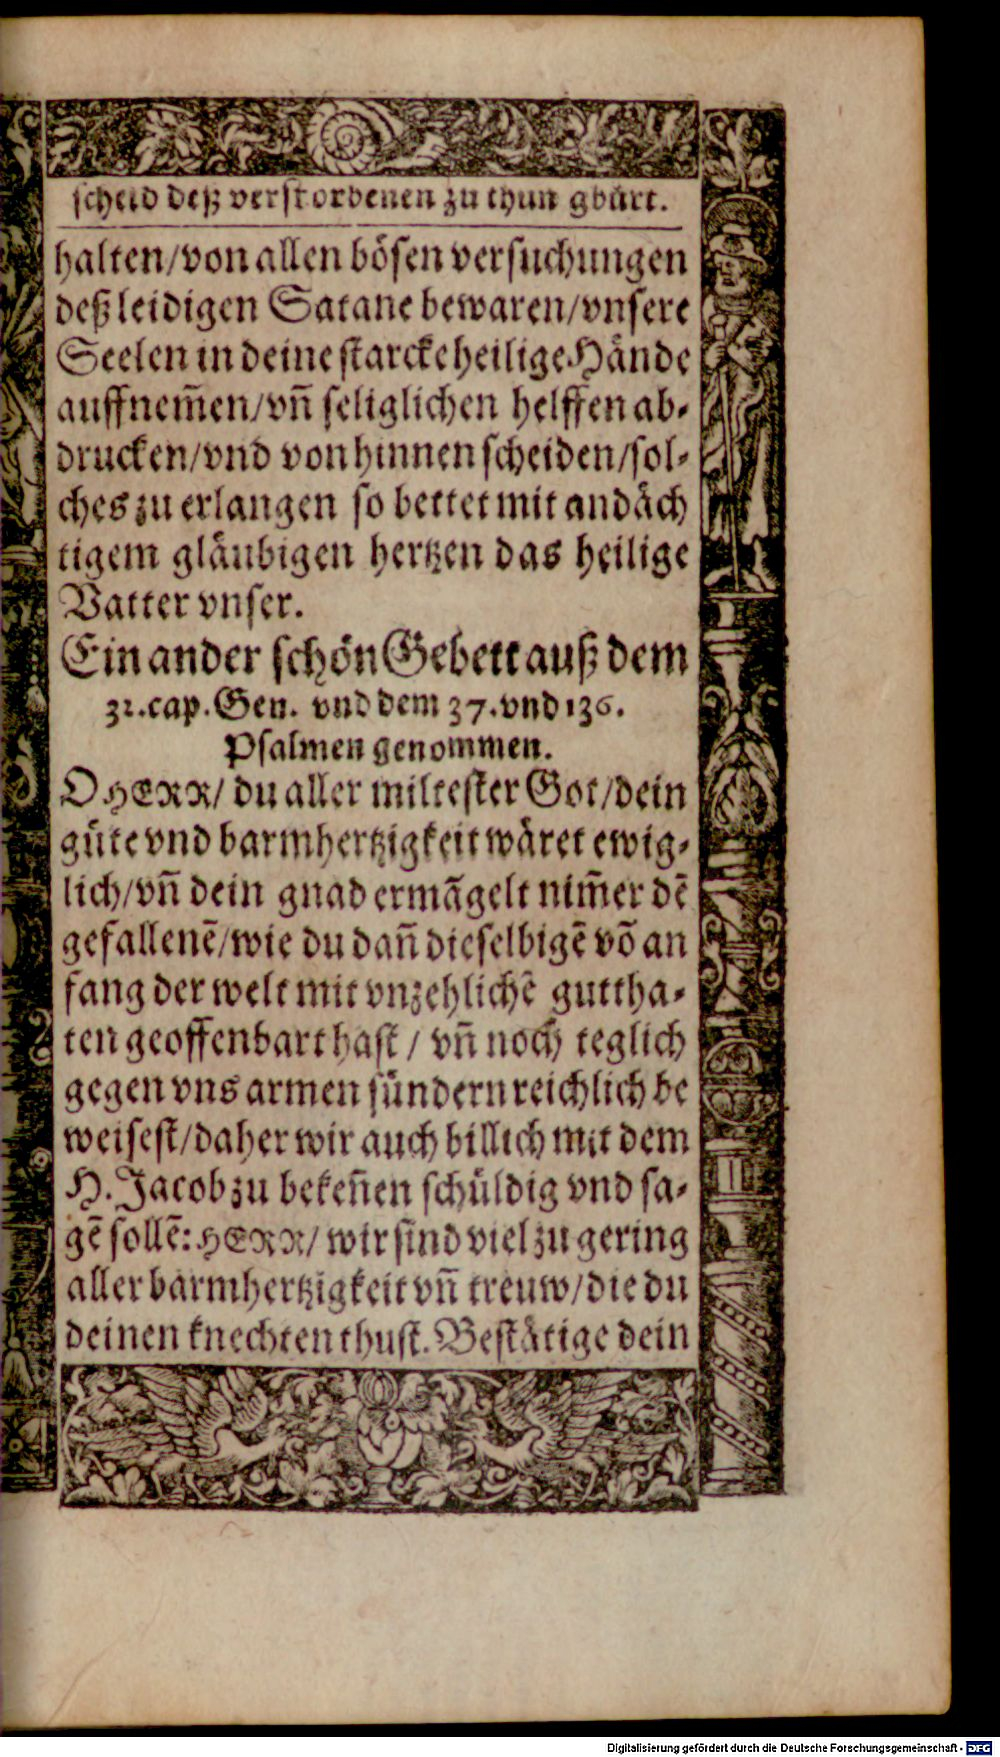 scheid deß verstorbenen zu thun gbürt.
halten/von allen bösen versuchungen
deß leidigen Satane bewaren/vnsere
Seelen in deine starcke heilige Hände
auffnem̃en/vñ seliglichen helffen ab-
drucken/vnd von hinnen scheiden/sol-
ches zu erlangen so bettet mit andäch
tigem gläubigen hertzen das heilige
Vatter vnser.
Ein ander schön Gebett auß dem
32.cap.Gen. vnd dem 37.vnd 136.
Psalmen genommen.
O HERR/ du aller miltester Got/dein
güte vnd barmhertzigkeit wäret ewig-
lich/vñ dein gnad ermãgelt nim̃er dẽ
gefallenẽ/wie du dañ dieselbigẽ võ an
fang der welt mit vnzehlichẽ guttha-
ten geoffenbart hast / vñ noch teglich
gegen vns armen sündern reichlich be
weisest/daher wir auch billich mit dem
H. Jacob zu bekeñen schüldig vnd sa-
gẽ sollẽ: HERR/ wir sind viel zu gering
aller barmhertzigkeit vñ treuw/die du
deinen knechten thust. Bestätige dein
Digitalisierung gefördert durch die Deutsche Forschungsgemeinschaft - DFG